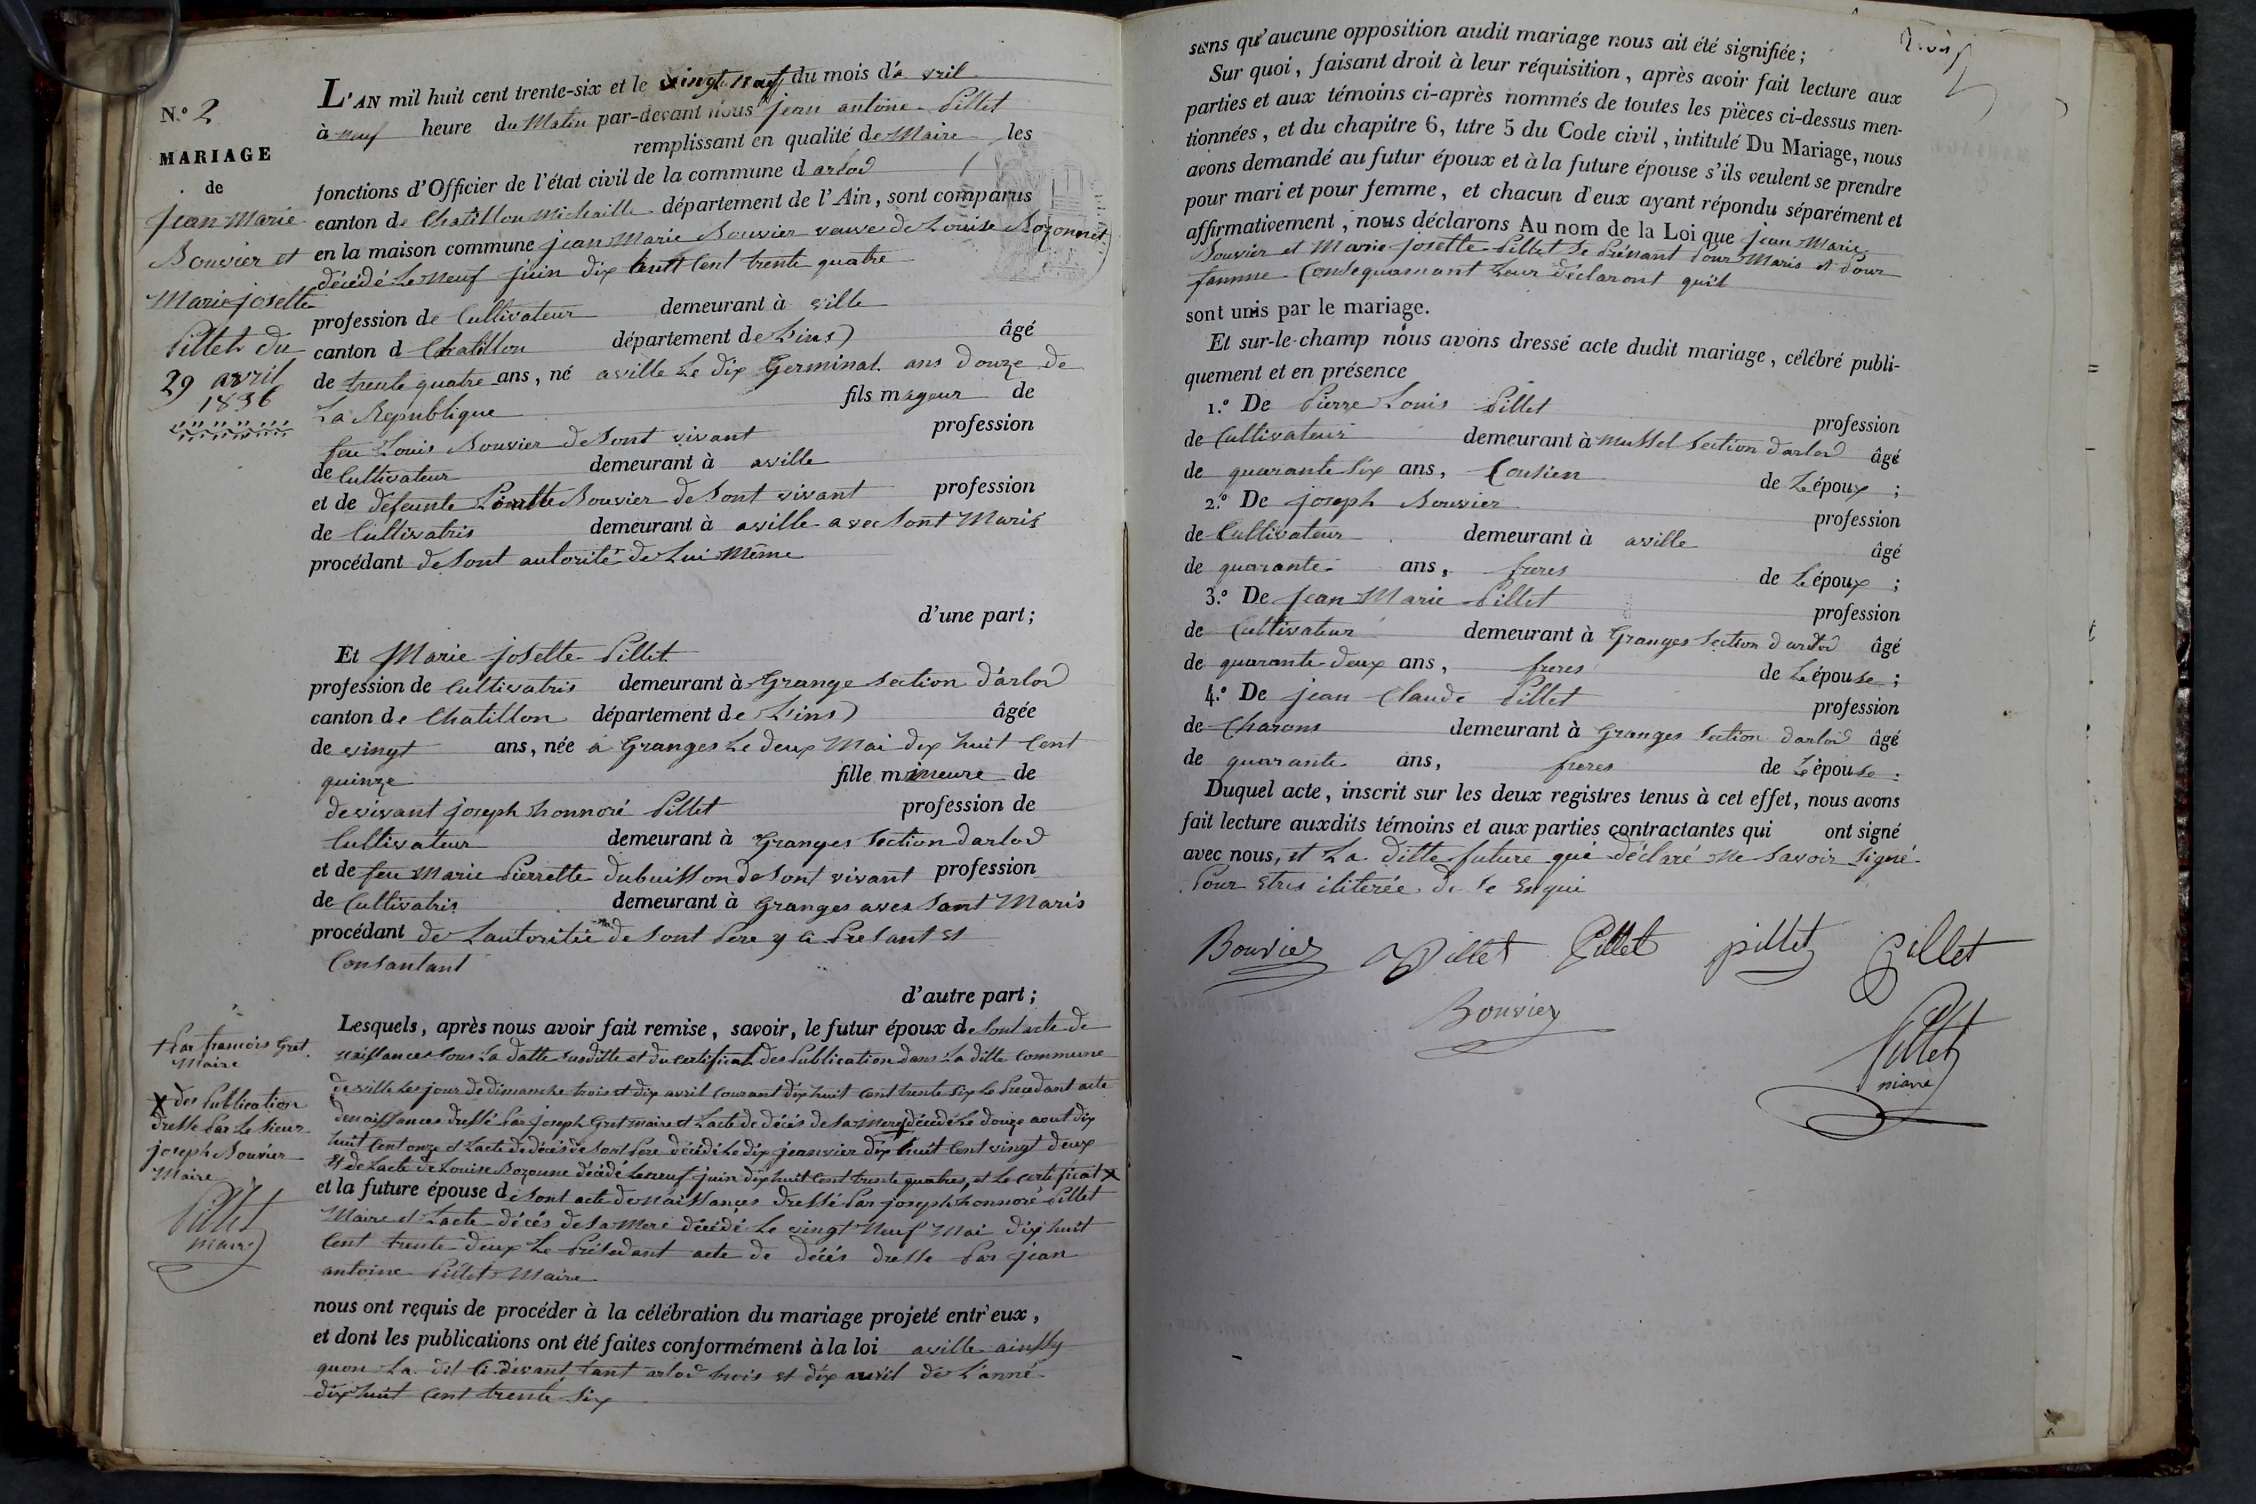 N.º 2
MARIAGE
de
jean Marie
Bouvier et
Marie josette
Pillet du
29 avril
1836
L'AN mil huit cent trente-six et le vingt neuf du mois d'a vril
à neuf heure du Matin par-devant nous jean antoine Pillet
remplissant en qualité de Maire les
fonctions d'Officier de l'état civil de la commune d arlod
canton de Chatillon Michaille département de l'Ain, sont comparus
en la maison commune jean Marie Bouvier veuve de Louise Bozonnet
décédé Le Neuf juin dix huit Cent trente quatre
profession de Cultivateur demeurant à ville
canton d Chatillon département de L'ins âgé
de trente quatre ans, né a ville Le dix Germinal ans douze de
La Republique fils mageur de
feu Louis Bouvier de Sont vivant profession
de Cultivateur demeurant à aville
et de defeunte Bouvier de Sont vivant profession
de Cultivatris demeurant à aville avec Sont Maris
procédant de Sont autorité de Lui Même
d'une part;
Et Marie josette Pillet
profession de Cultivatris demeurant à Grange Section d'arlod
canton de Chatillon département de L'ins âgée
de vingt ans, née a Granges Le deux Mai dix huit Cent
quinze fille mineure de
de vivant joseph honnoré Pillet profession de
Cultivateur demeurant à Granges Section darlod
et de feu Marie Pierrette dubuisson de Sont vivant profession
de Cultivatris demeurant à Granges avec Sont Maris
procédant de Lautoritée de Sont Pere y Ci Presant et
Consantant
d'autre part;
Lesquels, après nous avoir fait remise, savoir, le futur époux de Sont acte de
naissances Sous La datte Susditte et du certificat des Publication dans La ditte Commune
de ville Les jour de dimanche trois et dix avril Courant dix huit Cent trente Six Le Precedant acte
de naissances dressé Par joseph Gret maire et Lacte de décès de Sa Mere décédé Le douze aout dix
huit Cent onze et Lacte de décès de Sont Pere décédé Le dix jeanvier dix huit Cent vingt deux
Et de Lacte de Louise Bozonne décédé Le neuf juin dix huit Cent trente quatres, et Le certificat X
+ Par francois Gret
Maire
X des Publication
dresse Par Le Sieur
joseph Bouvier
Maire
Pillet
maire
et la future épouse de Sont acte de Naissances dressé Par joseph honnoré Pillet
Maire et Lacte décés de Sa Mere décédé Le vingt Neuf Mai dix huit
Cent trente deux Le Présedant acte de décés dresse Par jean
antoine Pillet Maire
nous ont requis de procéder à la célébration du mariage projeté entr'eux,
et dont les publications ont été faites conformément à la loi aville ainssy
quon La dit Ci-devant tant arlod trois et dix avril de L'anné
dix huit Cent trente Six
sans qu'aucune opposition audit mariage nous ait été signifiée;
Sur quoi, faisant droit à leur réquisition, après avoir fait lecture aux
parties et aux témoins ci-après nommés de toutes les pièces ci-dessus men-
tionnées, et du chapitre 6, titre 5 du Code civil, intitulé Du Mariage, nous
avons demandé au futur époux et à la future épouse s'ils veulent se prendre
pour mari et pour femme, et chacun d'eux ayant répondu séparément et
affirmativement, nous déclarons Au nom de la Loi que jean Marie
Bouvier et Marie josette Pillet Se Prénant Pour Maris et Pour
famme Consequamant Leur déclaront quil
sont unis par le mariage.
Et sur-le-champ nous avons dressé acte dudit mariage, célébré publi-
quement et en présence
1.º De Pierre Louis Pillet profession
de Cultivateur demeurant à Mussel Section darlod âgé
de quarante Six ans, Cousien de L'époux ;
2.º De joseph Bouvier profession
de Cultivateur demeurant à aville âgé
de quarante ans, freres de L'époux ;
3.º De jean Marie Pillet profession
de Cultivateur demeurant à Granges Section d'arlod âgé
de quarante deux ans, freres de L'épouse ;
4.º De jean Claude Pillet profession
de Charons demeurant à Granges Section darlod âgé
de quarante ans, freres de L'épouse .
Duquel acte, inscrit sur les deux registres tenus à cet effet, nous avons
fait lecture auxdits témoins et aux parties contractantes qui ont signé
avec nous, et La ditte future qui déclaré Ne Savoir Signé
Pour Etres iliterée de Se Enqui
Bouvier Pillet Pillet pillet Pillet
Bouvier
Pillet
maire